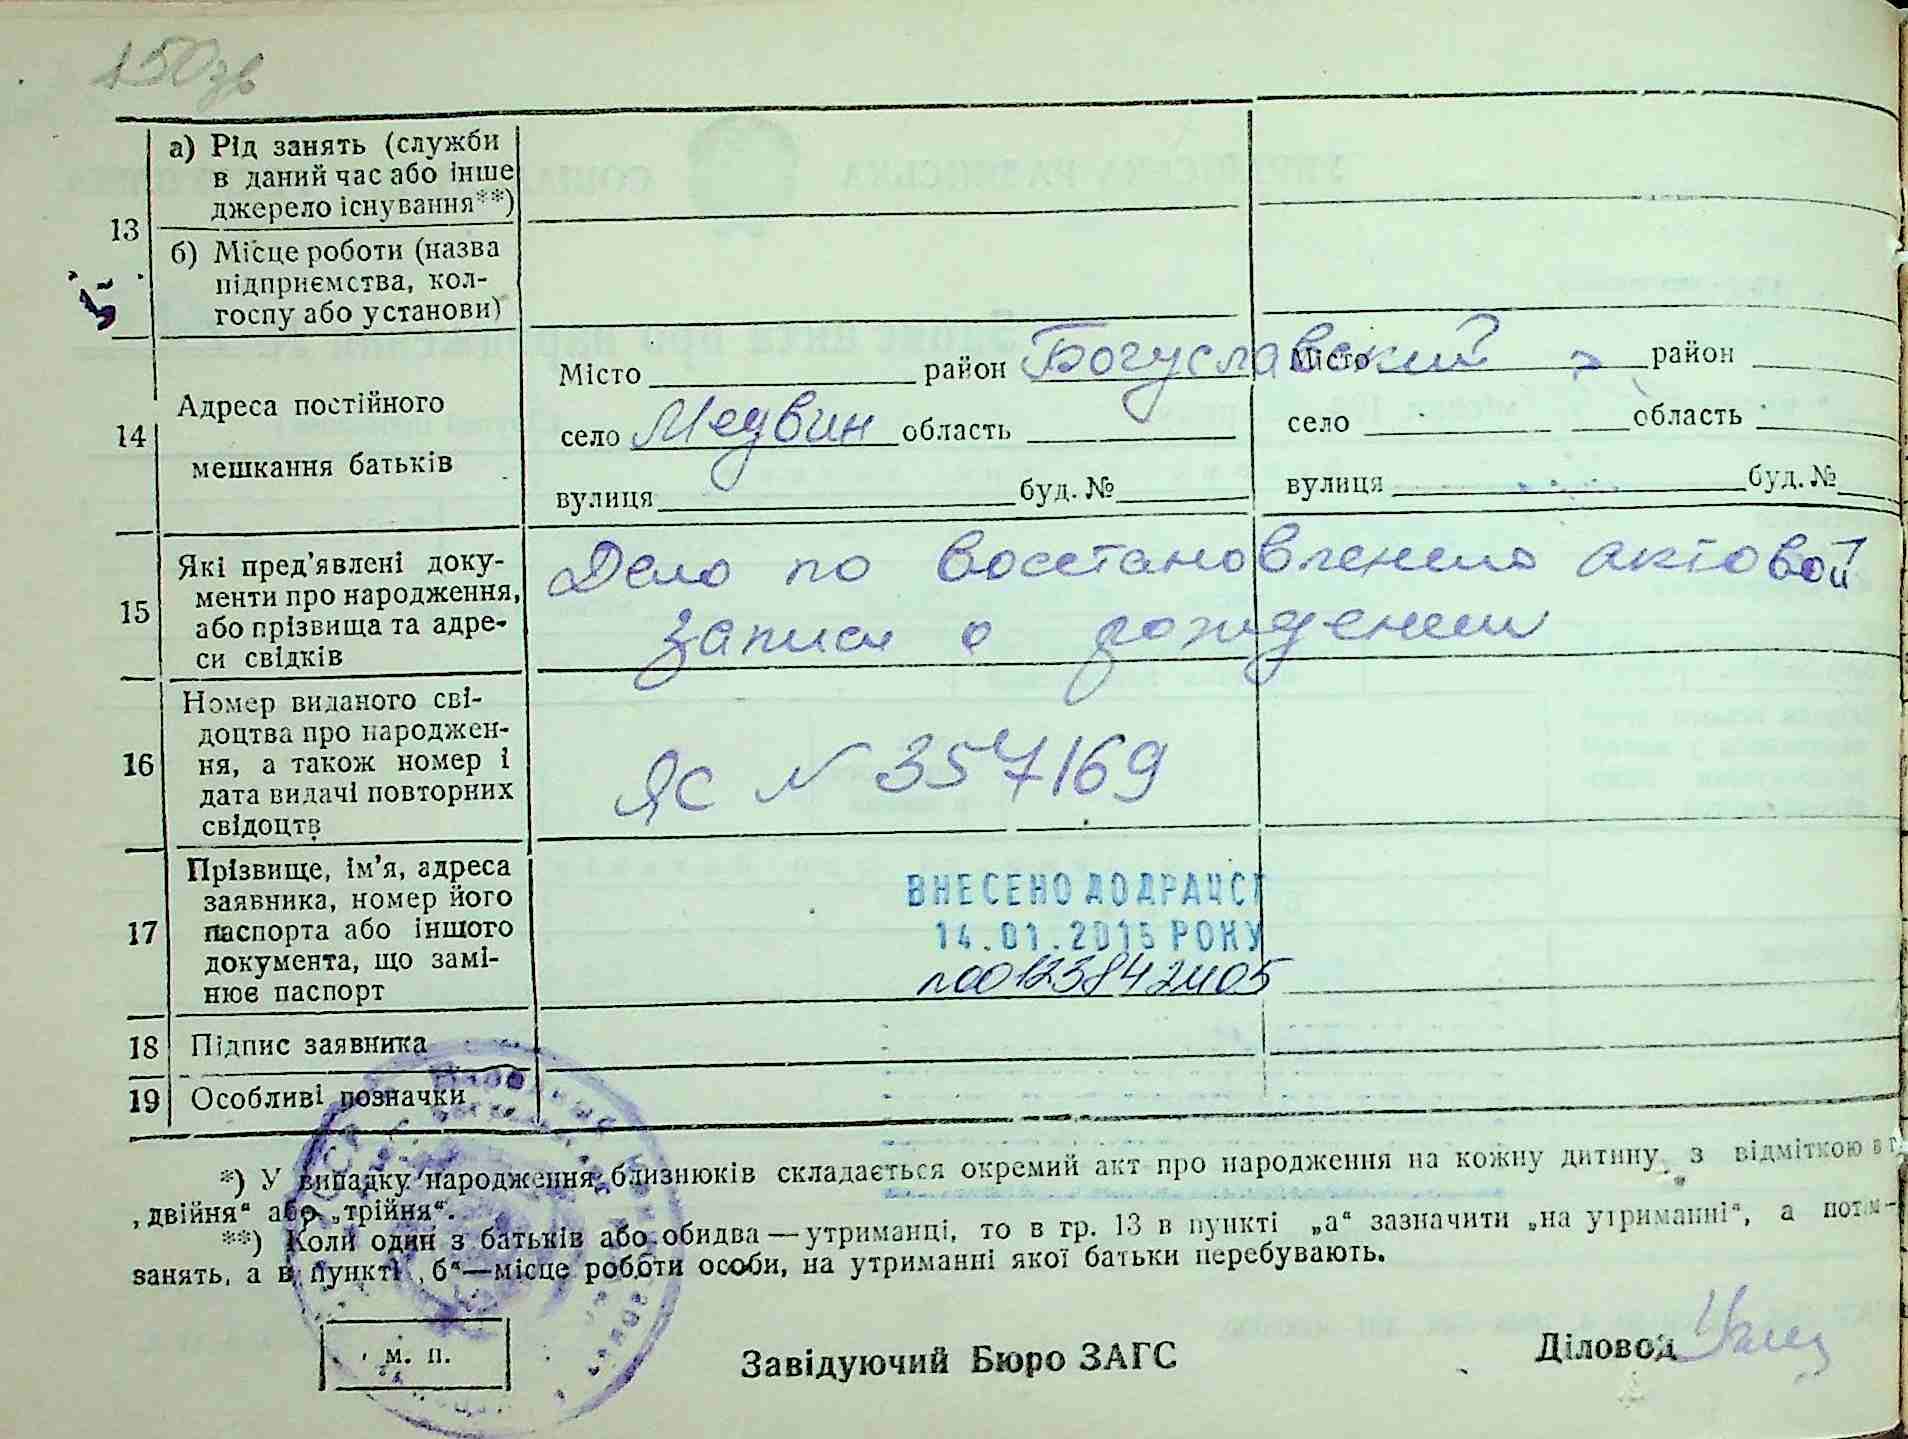 150зв
13
а) Рід занять (служби
в даний час або інше
джерело існування**)
б) Місце роботи (назва
підприємства, кол-
госпу або установи)
14
Адреса постійного
мешкання батьків
Місто район Богуславский Місто район
село Медвин область село область
вулиця буд. № вулиця буд. №
15
Які пред’явлені доку-
менти про народження,
або прізвища та адре-
си свідків
Дело по восстановлению актовой
записи о рождении
16
Номер виданого сві-
доцтва про народжен-
ня, а також номер і
дата видачі повторних
свідоцтв
ЯС № 357169
17
Прізвище, ім’я, адреса
заявника, номер його
паспорта або іншого
документа, що замі-
нює паспорт
ВНЕСЕНО ДО ДРАЦСГ
14.01.2015 РОКУ
18 Підпис заявника
19 Особливі позначки
*) У випадку народження близнюків складається окремий акт про народження на кожну дитину з відміткою в г
„двійня“ або „трійня“.
**) Коли один з батьків або обидва — утриманці, то в гр. 13 в пункті „а“ зазначити „на утриманні“, а потім-
занять, а в пункті „б“—місце роботи особи, на утриманні якої батьки перебувають.
м. п.
Завідуючий Бюро ЗАГС
Діловод